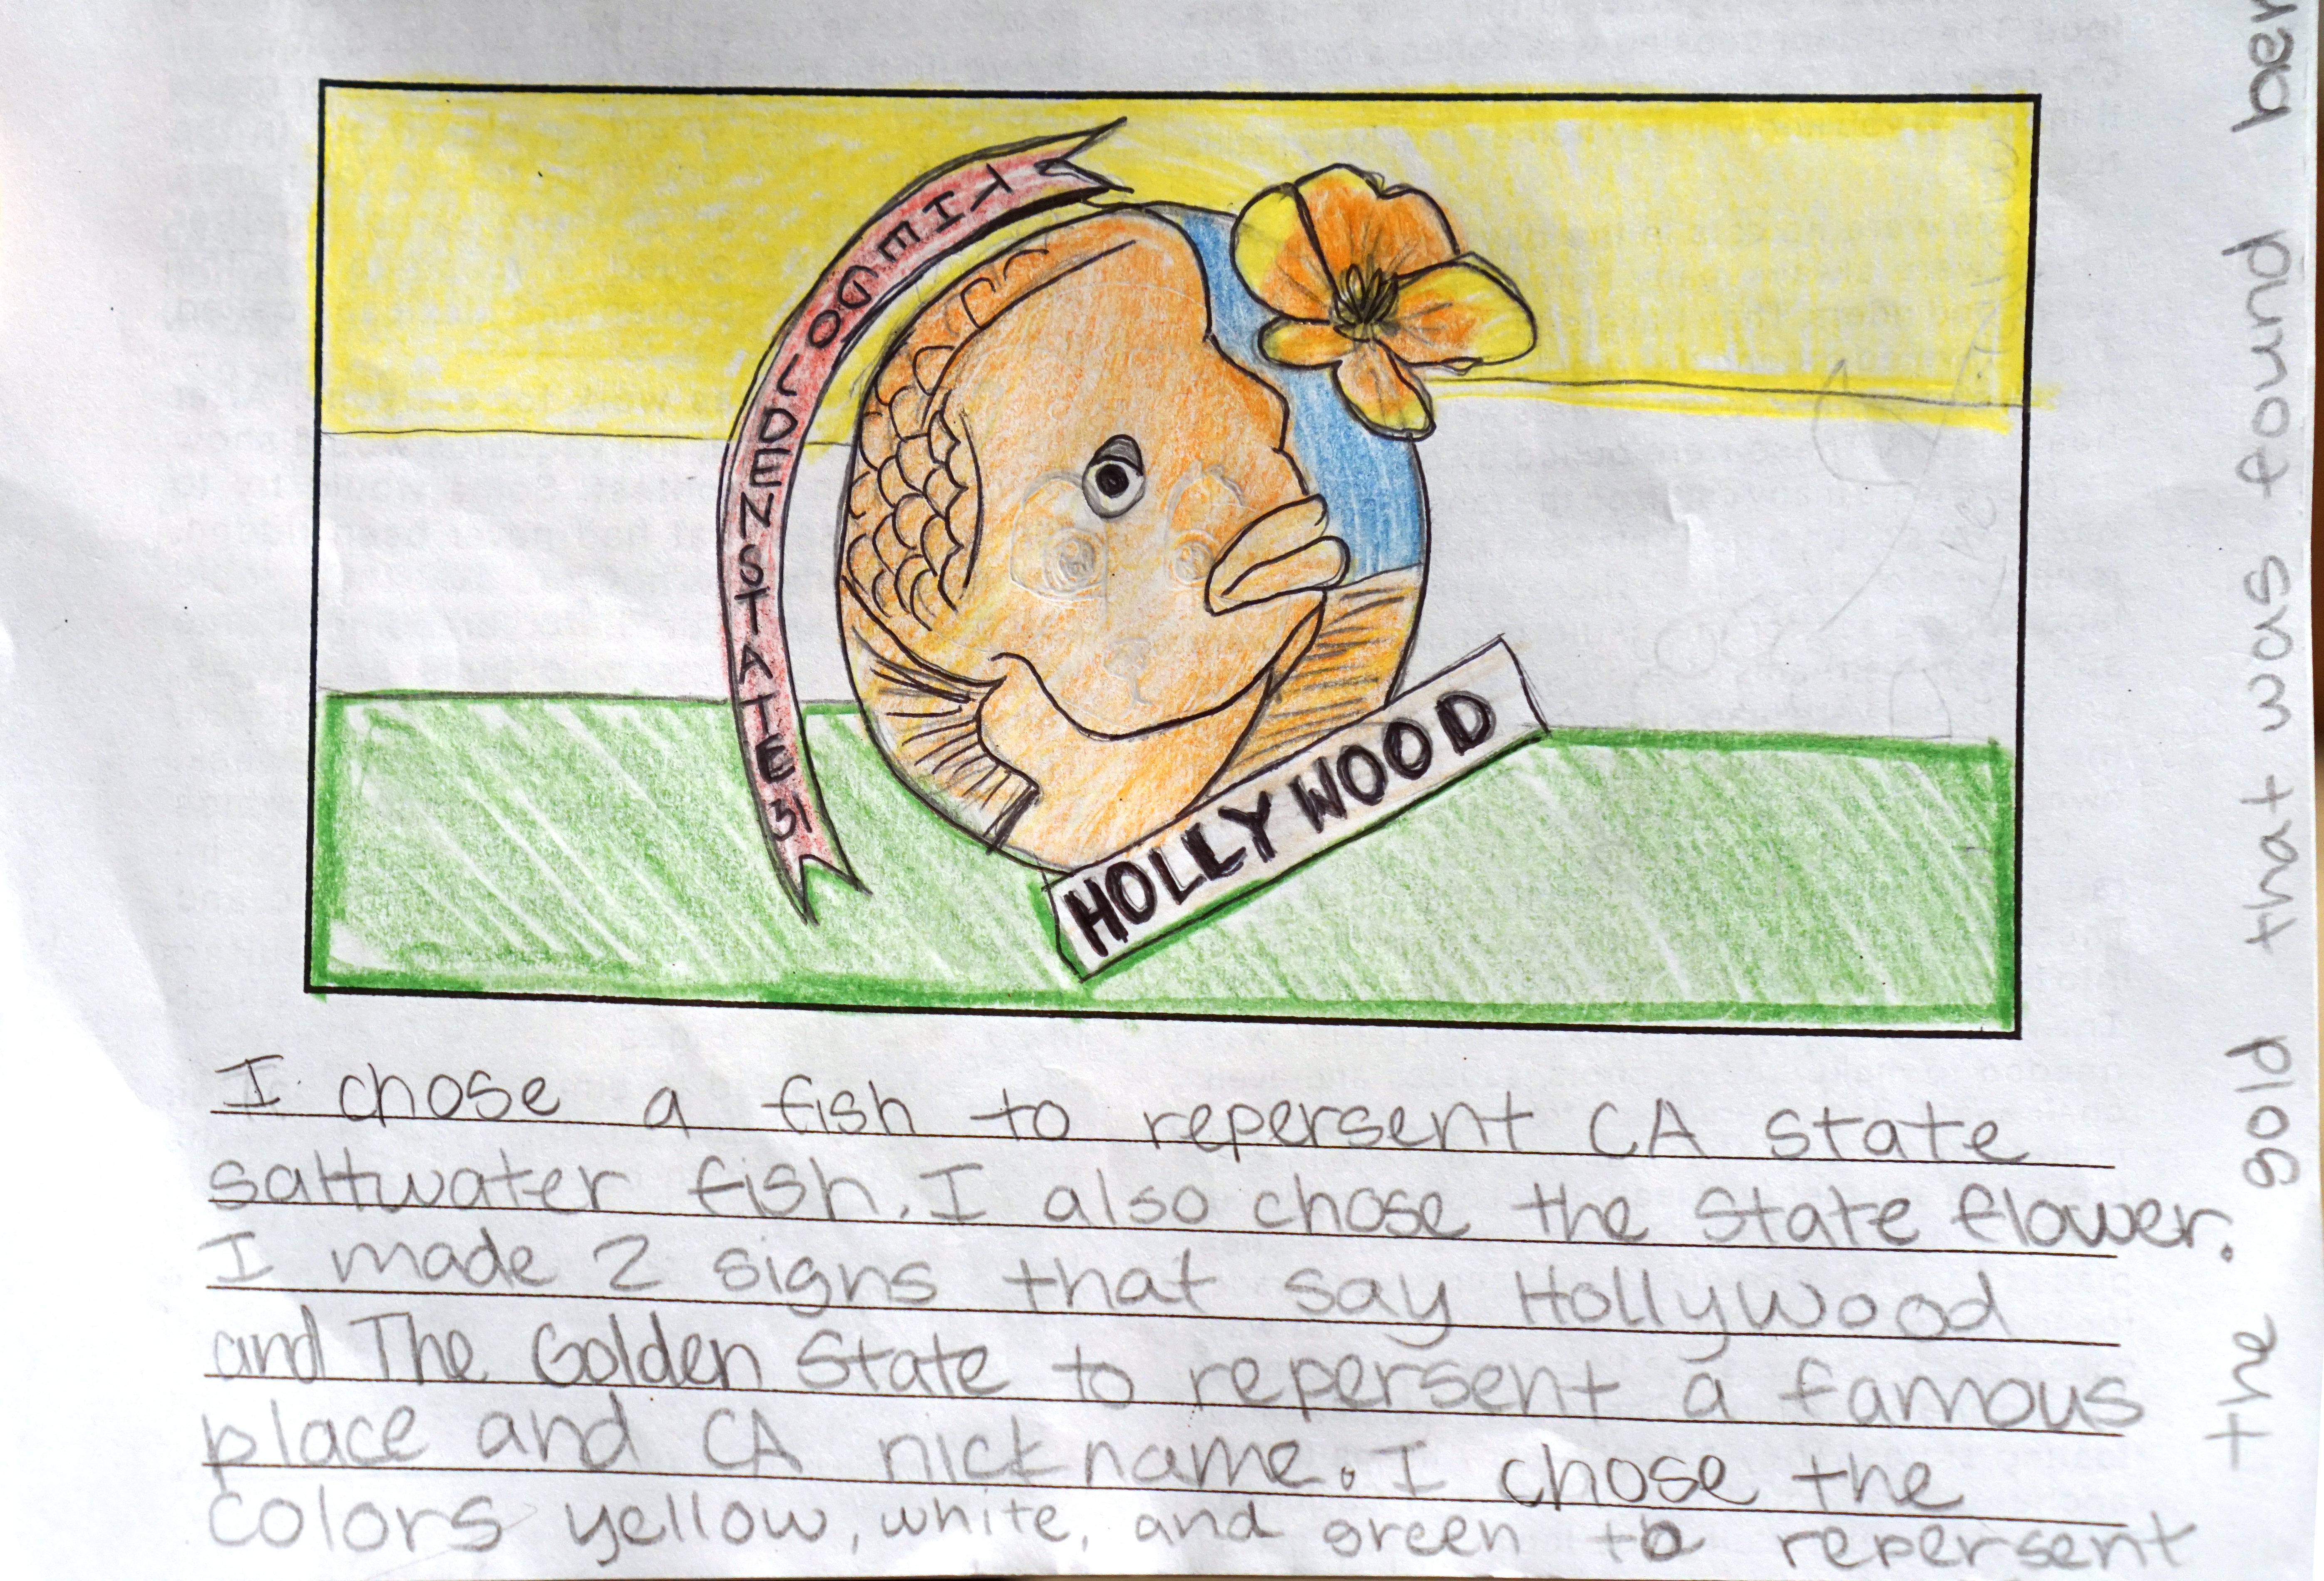 THE GOLDEN STATE 31
HOLLYWOOD
I chose a fish to repersent CA state
saltwater fish. I also chose the state flower.
I made 2 signs that say Hollywood
and The Golden State to repersent a famous
place and CA nickname. I chose the
colors yellow, white, and green to repersent
the gold that was found